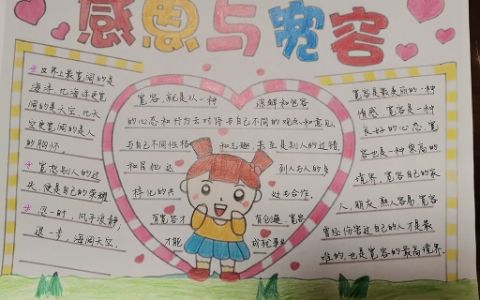 感恩与宽容
世界上最宽阔的是
海洋,比海洋更宽
阔的是天空,比天
空更宽阔的是人
的胸怀
宽恕别人的过
失,便是自己的荣耀
忍一时,风平浪静,
退一步,海阔天空。
宽容,就是以一种 理解和包容
的心态和行为去对待与自己不同的观点和意见,
与自己不同性格和志趣,甚至是别人的过错
和冒犯 到人与人的多
样化的共 处与合作。
有宽容才 有包涵,宽容
才能 成就事业
宽容是最美丽的一种
情感,宽容是一种
良好的心态,宽
容也是一种崇高的
境界,宽容自己的家
人、朋友、熟人容易,宽容
曾经伤害过自己的人才是最
难的,也是宽容的最高境界